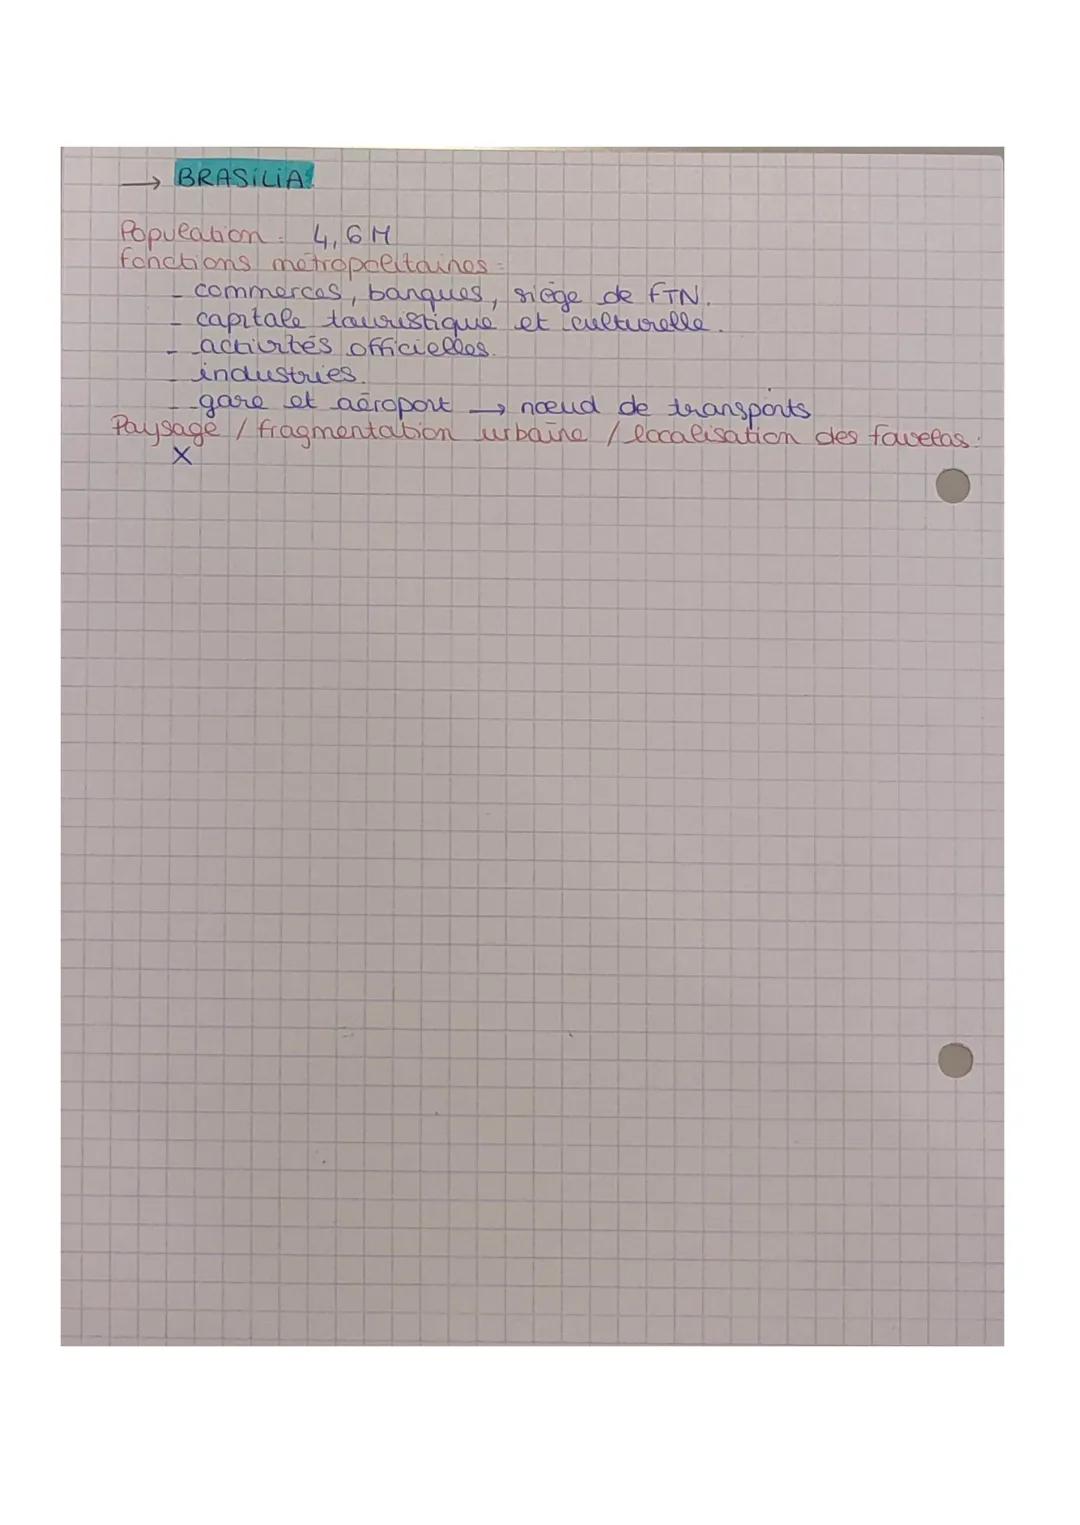 → BRASiLiA:
Population : 4,6 M
Fonctions métropolitaines :
- commerces, banques, siège de FTN.
- capitale touristique et culturelle.
- activités officielles.
- industries.
- gare et aéroport → nœud de transports
Paysage / fragmentation urbaine / localisation des favelas :
X